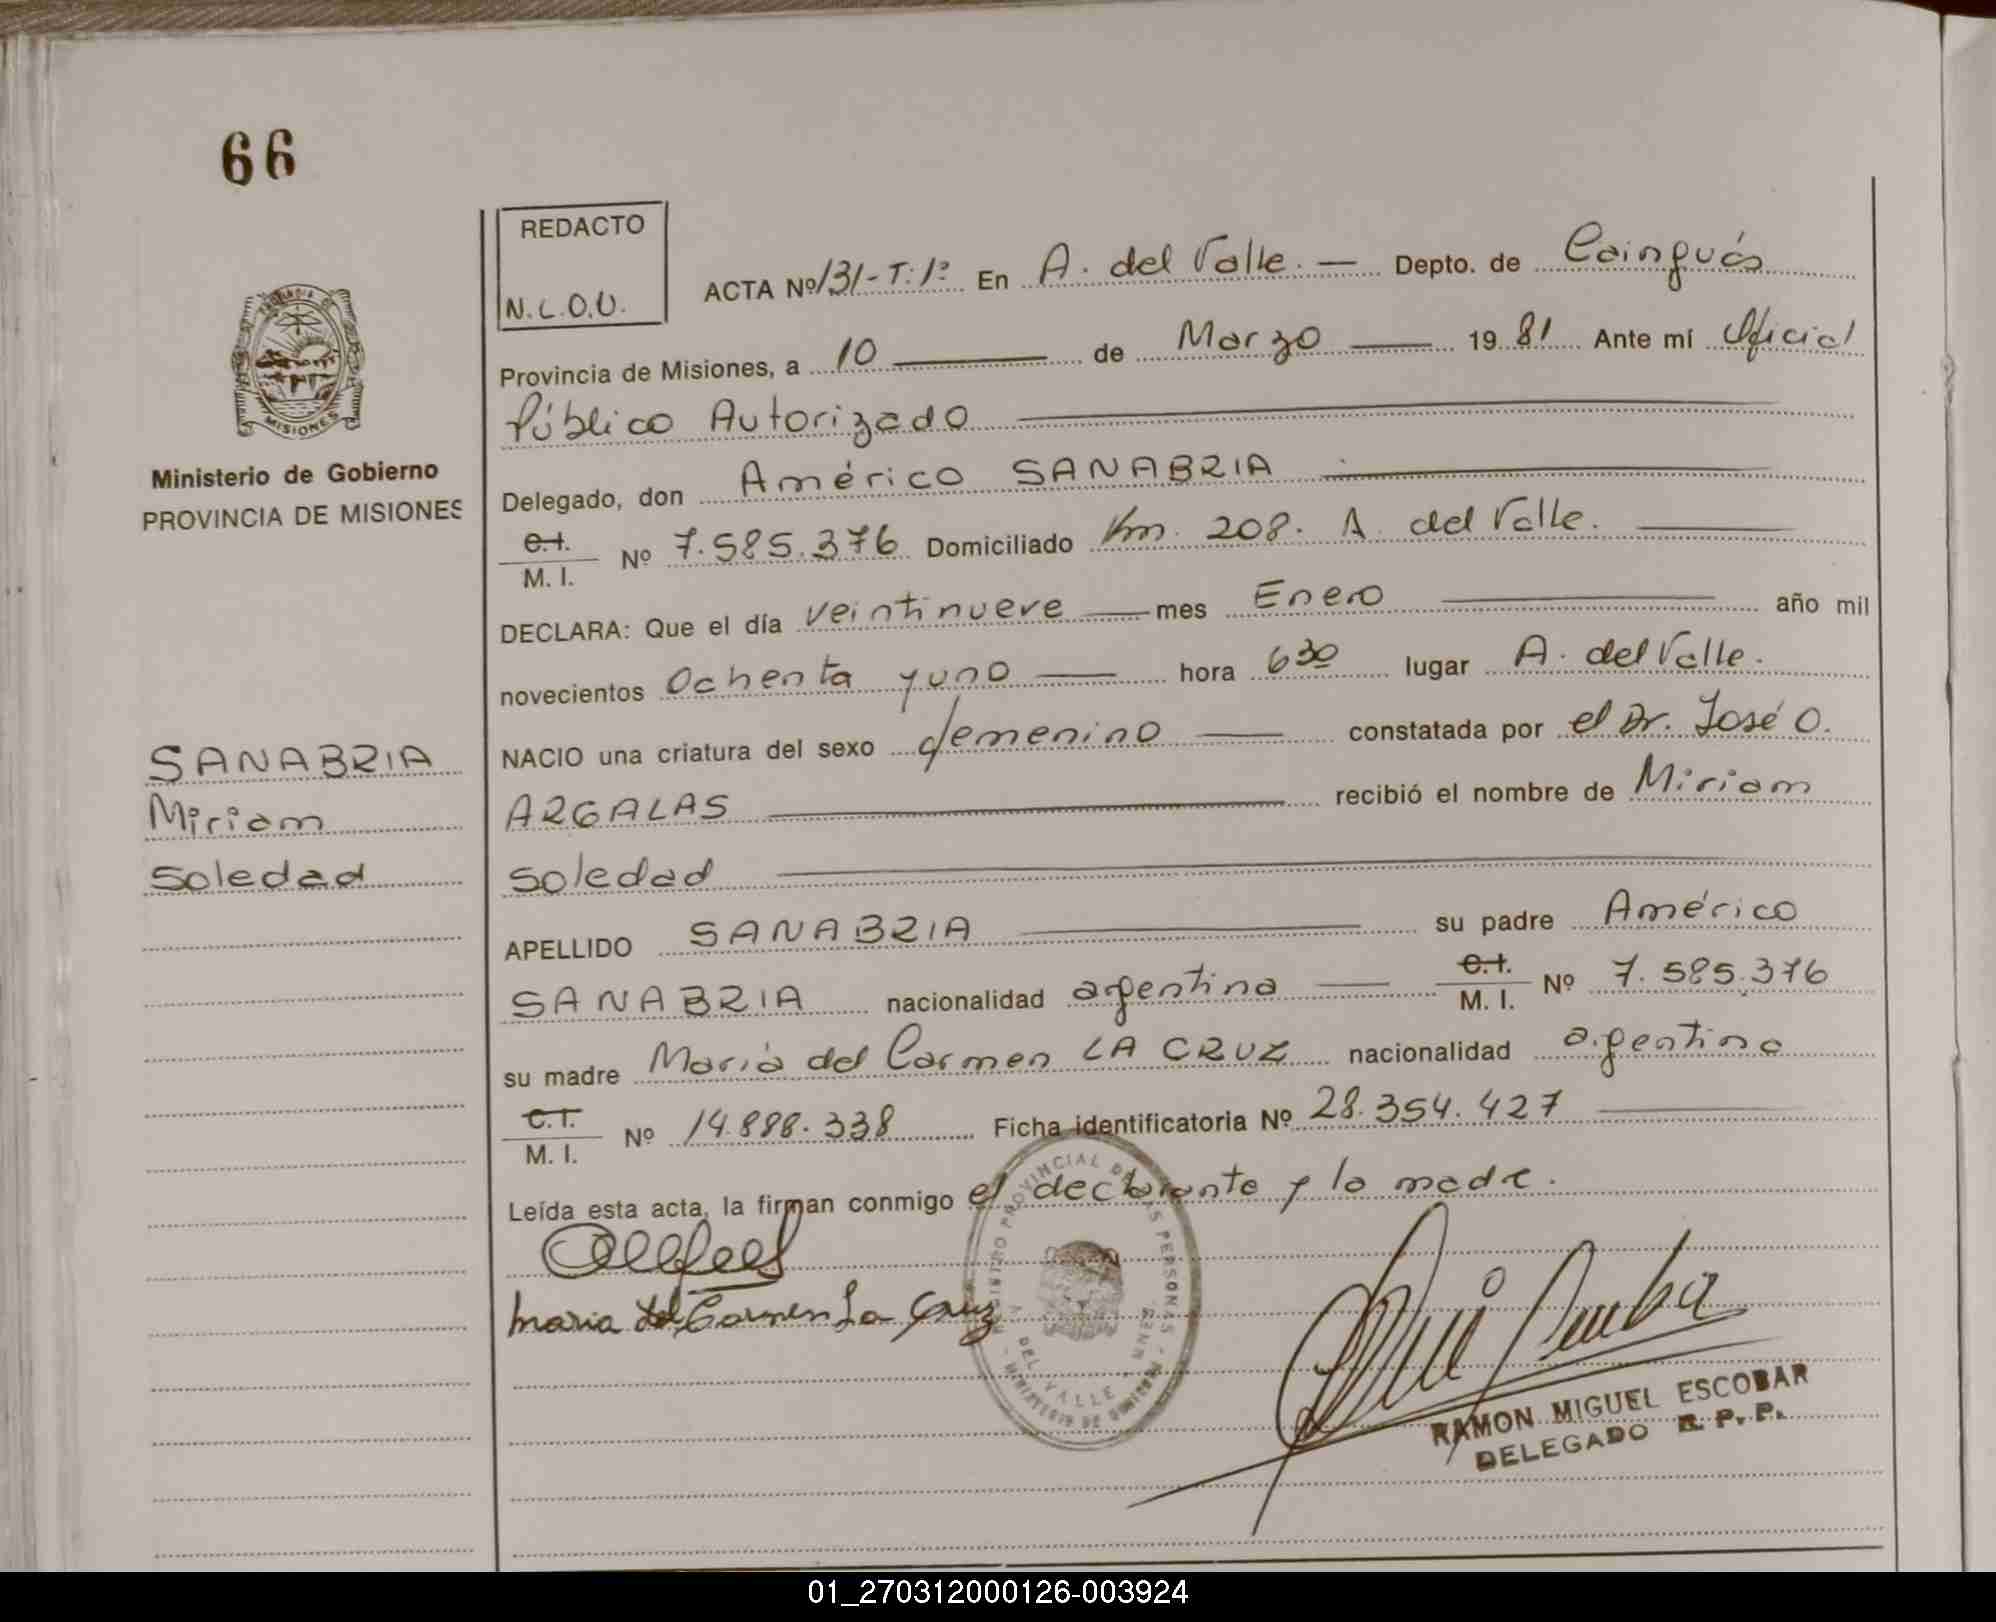 66
REDACTO
N.L.O.U.
ACTA Nº 131-T:1º En A. del Valle. — Depto. de Cainguás
Provincia de Misiones, a 10 — de Marzo — 1981 Ante mí Oficial
Público Autorizado
MISIONES
Ministerio de Gobierno
PROVINCIA DE MISIONES
Delegado, don Américo SANABRIA
C.I. / M. I. Nº 7.585.376 Domiciliado Km. 208. A. del Valle.
DECLARA: Que el día veintinueve — mes Enero — año mil
novecientos Ochenta y uno — hora 6 30 lugar A. del Valle.
SANABRIA
Miriam
Soledad
NACIO una criatura del sexo femenino — constatada por el Dr. José O.
ARGALAS — recibió el nombre de Miriam
Soledad
APELLIDO SANABRIA — su padre Américo
SANABRIA nacionalidad argentina — C.I. / M. I. Nº 7.585.376
su madre María del Carmen LA CRUZ nacionalidad argentina
C.I. / M. I. Nº 14.888.338 Ficha identificatoria Nº 28.354.427
Leída esta acta, la firman conmigo el declarante y la madre.
Maria del Carmen La Cruz
REGISTRO PROVINCIAL DE LAS PERSONAS
DEL VALLE
RAMON MIGUEL ESCOBAR
DELEGADO R. P. P.
01_270312000126-003924